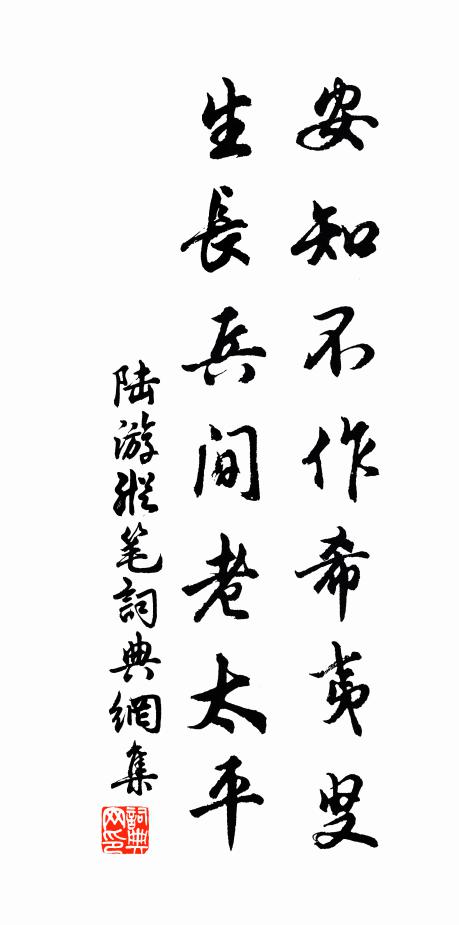 安知不作希夷叟
生長兵間老太平
陆游縱笔詞典網集
詞典网印